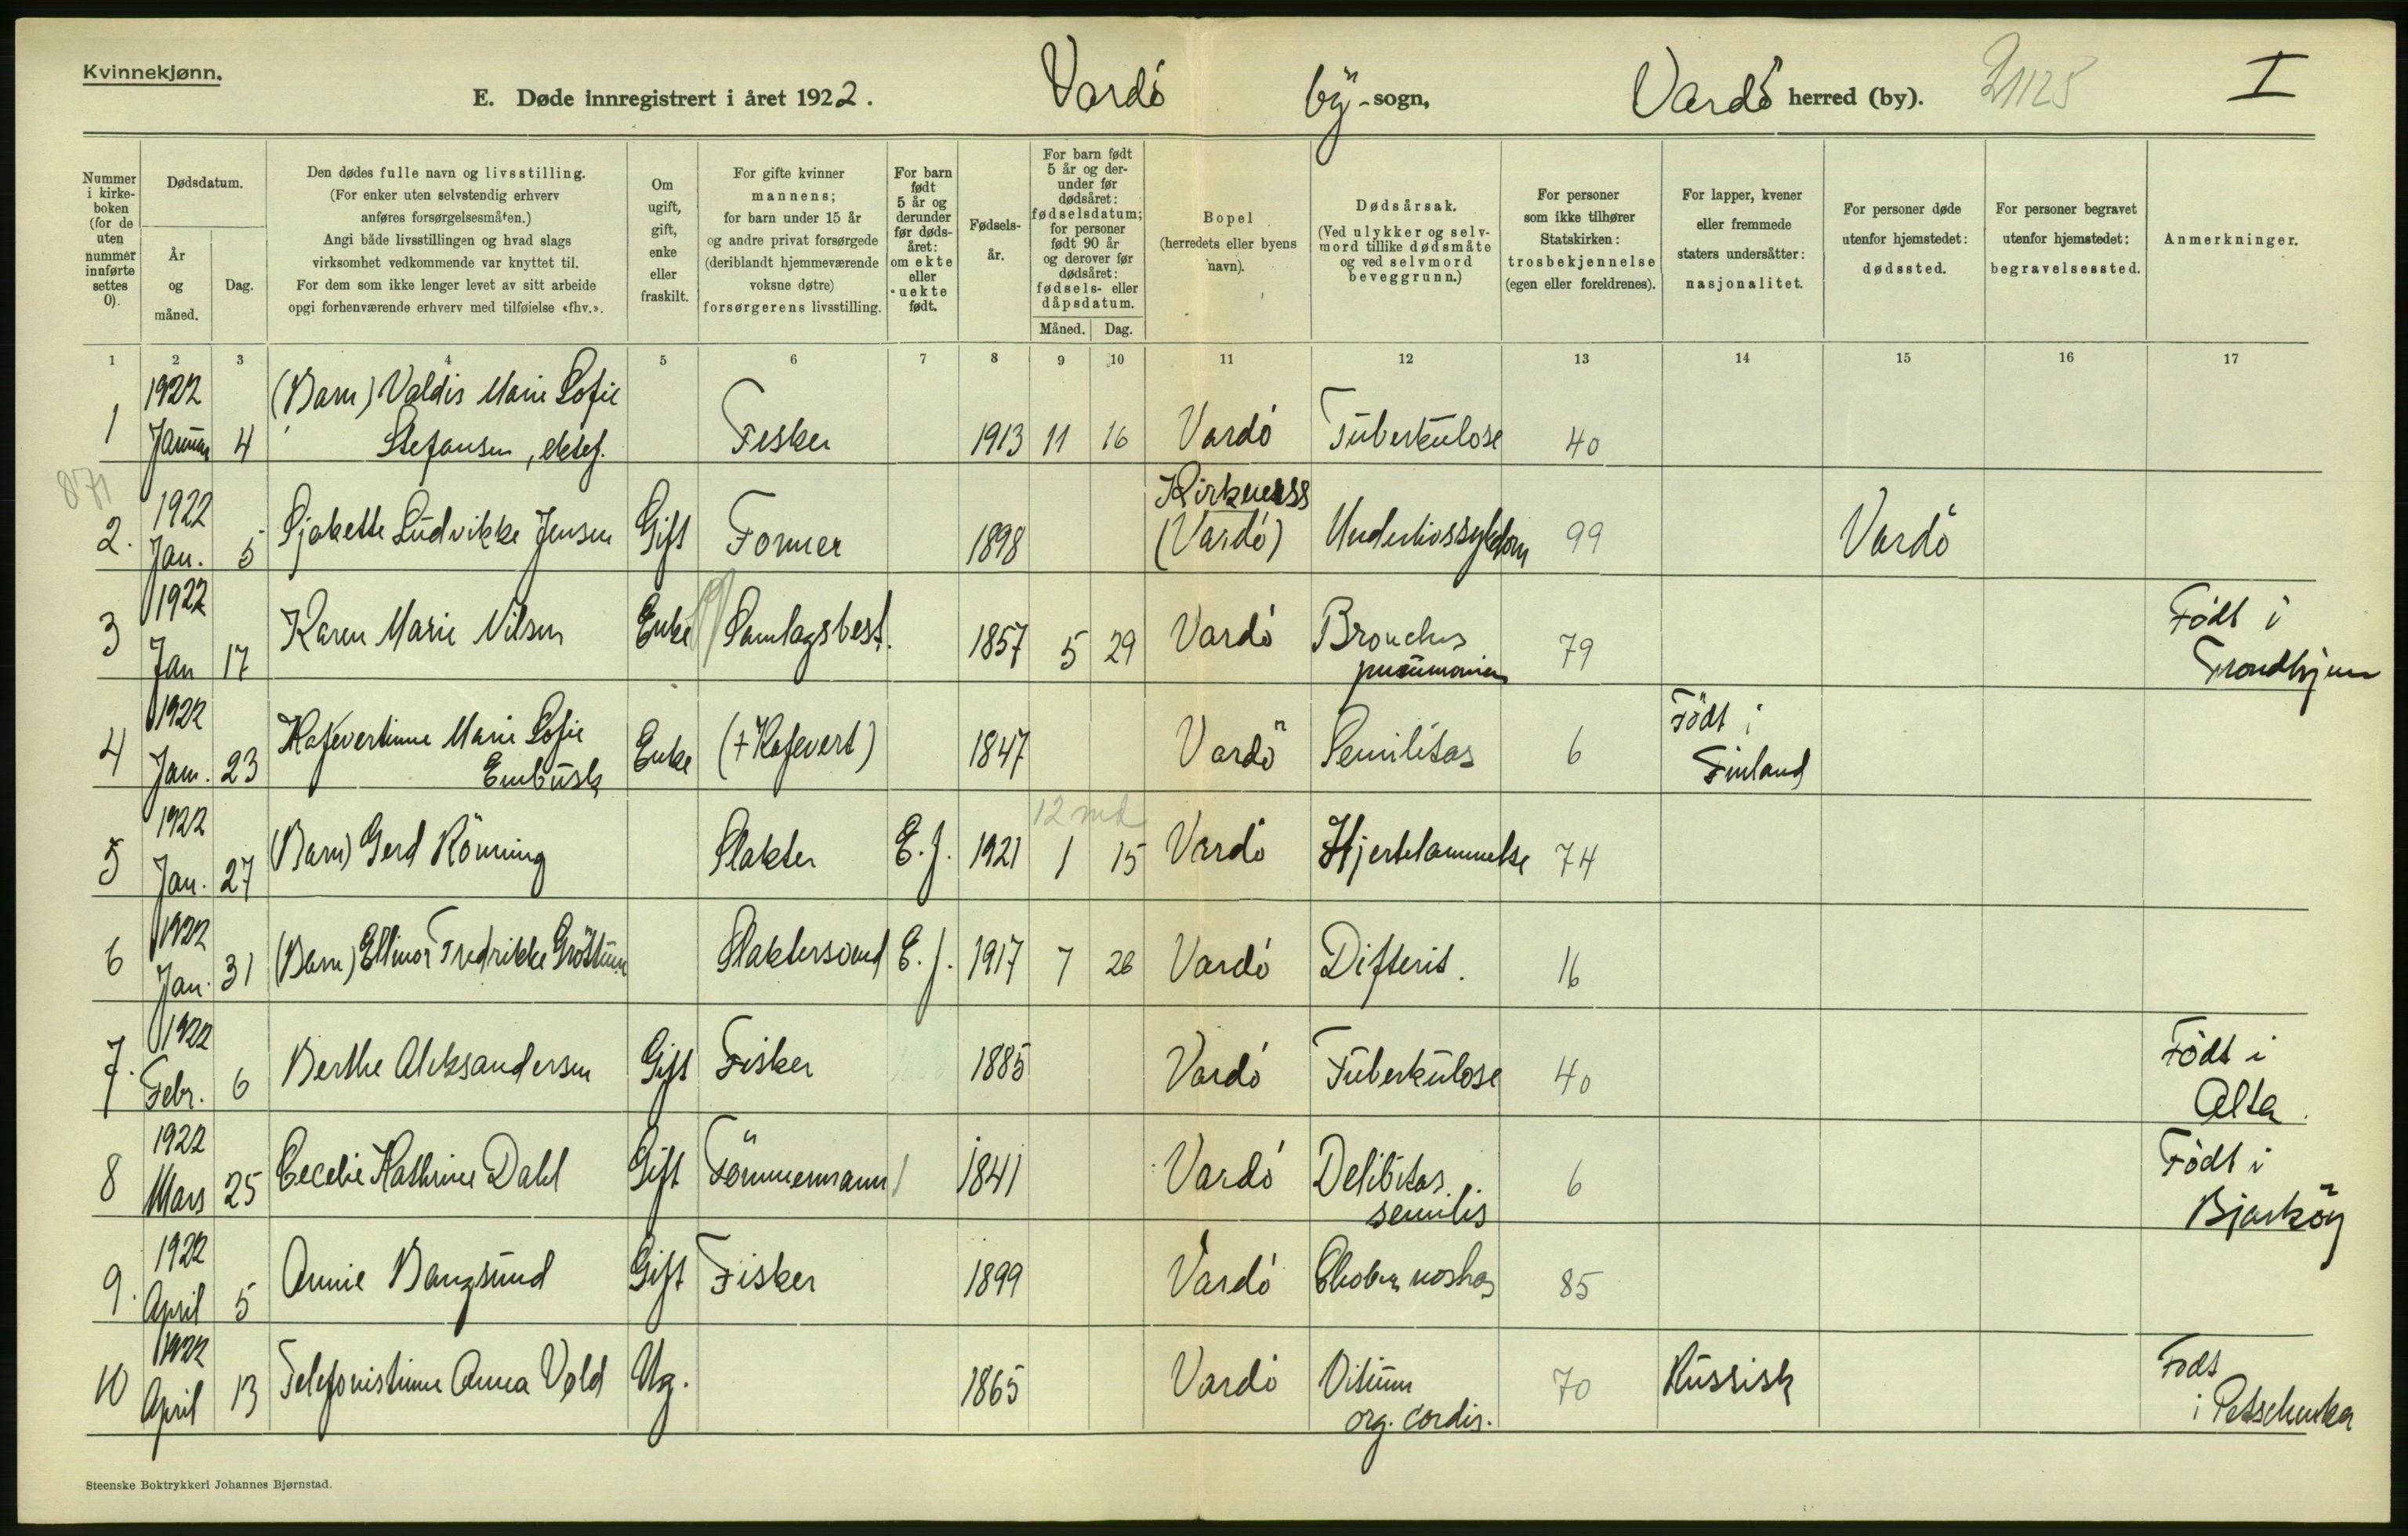 Kvinnekjønn.
E. Døde innregistrert i året 1922. Vardö by-sogn, Vardö herred (by). 21125 I
Nummer i kirkeboken (for de uten nummer innførte settes 0).
Dødsdatum.
År og måned.
Dag.
Den dødes fulle navn og livsstilling.
(For enker uten selvstendig erhverv anføres forsørgelsesmåten.)
Angi både livsstillingen og hvad slags virksomhet vedkommende var knyttet til.
For dem som ikke lenger levet av sitt arbeide opgi forhenværende erhverv med tilføielse «fhv.».
Om ugift, gift, enke eller fraskilt.
For gifte kvinner mannens; for barn under 15 år og andre privat forsørgede (deriblandt hjemmeværende voksne døtre) forsørgerens livsstilling.
For barn født 5 år og derunder før dødsåret: om ekte eller uekte født.
Fødselsår.
For barn født 5 år og derunder før dødsåret: fødselsdatum; for personer født 90 år og derover før dødsåret: fødsels- eller dåpsdatum.
Måned. Dag.
Bopel (herredets eller byens navn).
Dødsårsak. (Ved ulykker og selvmord tillike dødsmåte og ved selvmord beveggrunn.)
For personer som ikke tilhører Statskirken: trosbekjennelse (egen eller foreldrenes).
For lapper, kvener eller fremmede staters undersåtter: nasjonalitet.
For personer døde utenfor hjemstedet: dødssted.
For personer begravet utenfor hjemstedet: begravelsessted.
Anmerkninger.
1 2 3 4 5 6 7 8 9 10 11 12 13 14 15 16 17
1 1922 Januar 4 (Barn) Valdis Marie Sofie Stefansen, ektef. Fisker 1913 11 16 Vardö Tuberkulose 40
871
2. 1922 Jan. 5 Sjakette Ludvikke Jensen Gift Former 1898 Kirkeness (Vardö) Underlivssykdom 99 Vardö
3 1922 Jan 17 Karen Marie Nilsen Enke Samlagsbest. 1857 5 29 Vardö Bronchus pneumonien 79 Födt i Trondhjem
4 1922 Jan. 23 Kafevertinne Marie Sofie Embusk Enke (+ Kafevert) 1847 Vardö Senilitas 6 Födt i Finland
12 md
5 1922 Jan. 27 (Barn) Gerd Rönning Slakter E.f. 1921 1 15 Vardö Hjertelammelse 74
6 1922 Jan. 31 (Barn) Ellinor Fredrikke Gröttum Slaktersvend E.f. 1917 7 26 Vardö Difterit. 16
7. 1922 Febr. 6 Berthe Aleksandersen Gift Fisker 1885 Vardö Tuberkulose 40 Födt i Alta.
8 1922 Mars 25 Cecelie Kathrine Dahl Gift Tömmermann 1841 Vardö Debilitas senilis 6 Födt i Bjarköy
9. 1922 April 5 Annie Bangsund Gift Fisker 1899 Vardö 85
10 1922 April 13 Telefonistinne Anna Vold Ug. 1865 Vardö Vitium org. cordis. 70 Russisk Födt i Petschenka
Steenske Boktrykkeri Johannes Bjørnstad.